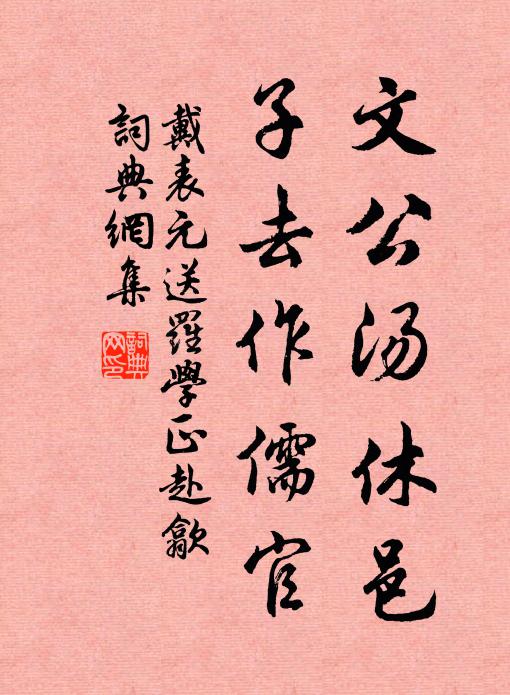 文公汤休邑
子去作儒官
戴表元送羅學正赴歙
詞典網集
詞典网印